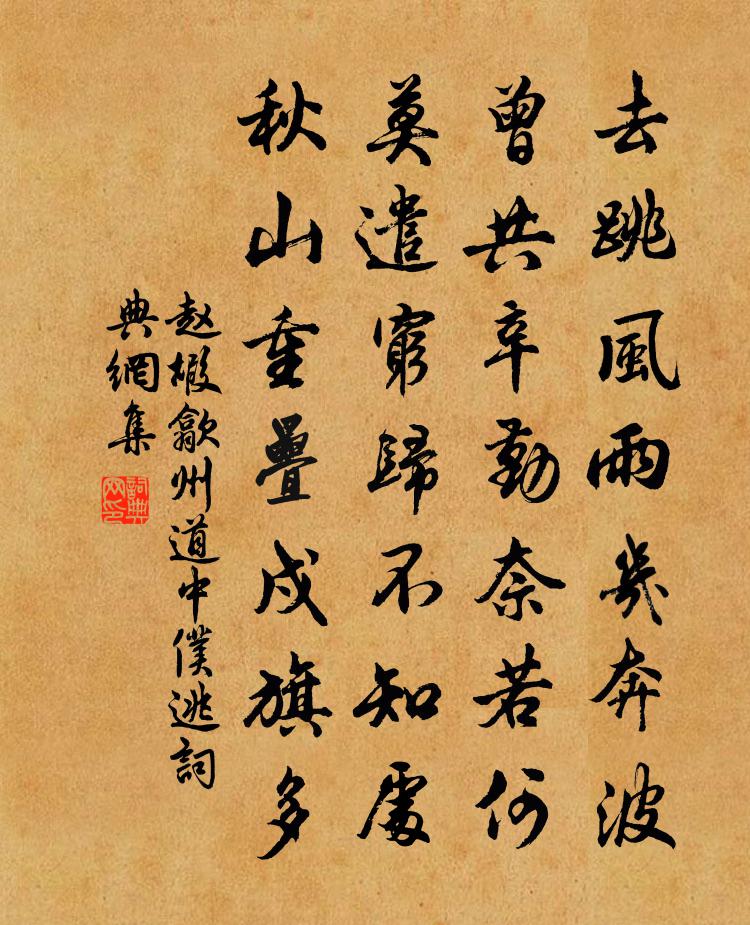 去跳風雨幾奔波
曾共辛勤奈若何
莫遣窮歸不知處
秋山重疊戍旗多
赵嘏歙州道中僕逃詞
典網集
詞典
网印